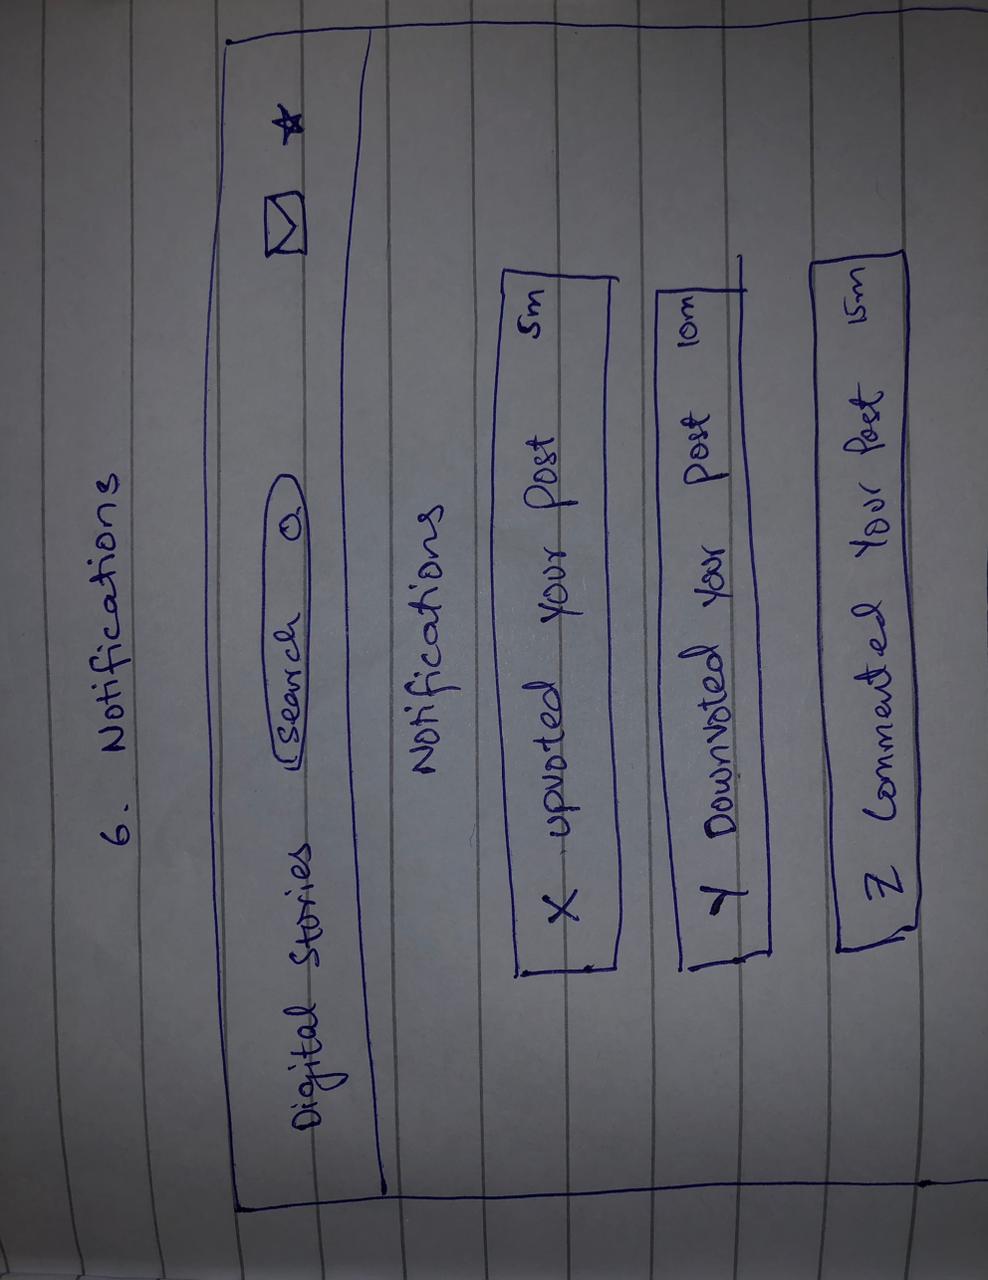 6. Notifications
Digital Stories search
Notifications
X upvoted your post 5m
Y Downvoted your post 10m
Z Commented Your Post 15m